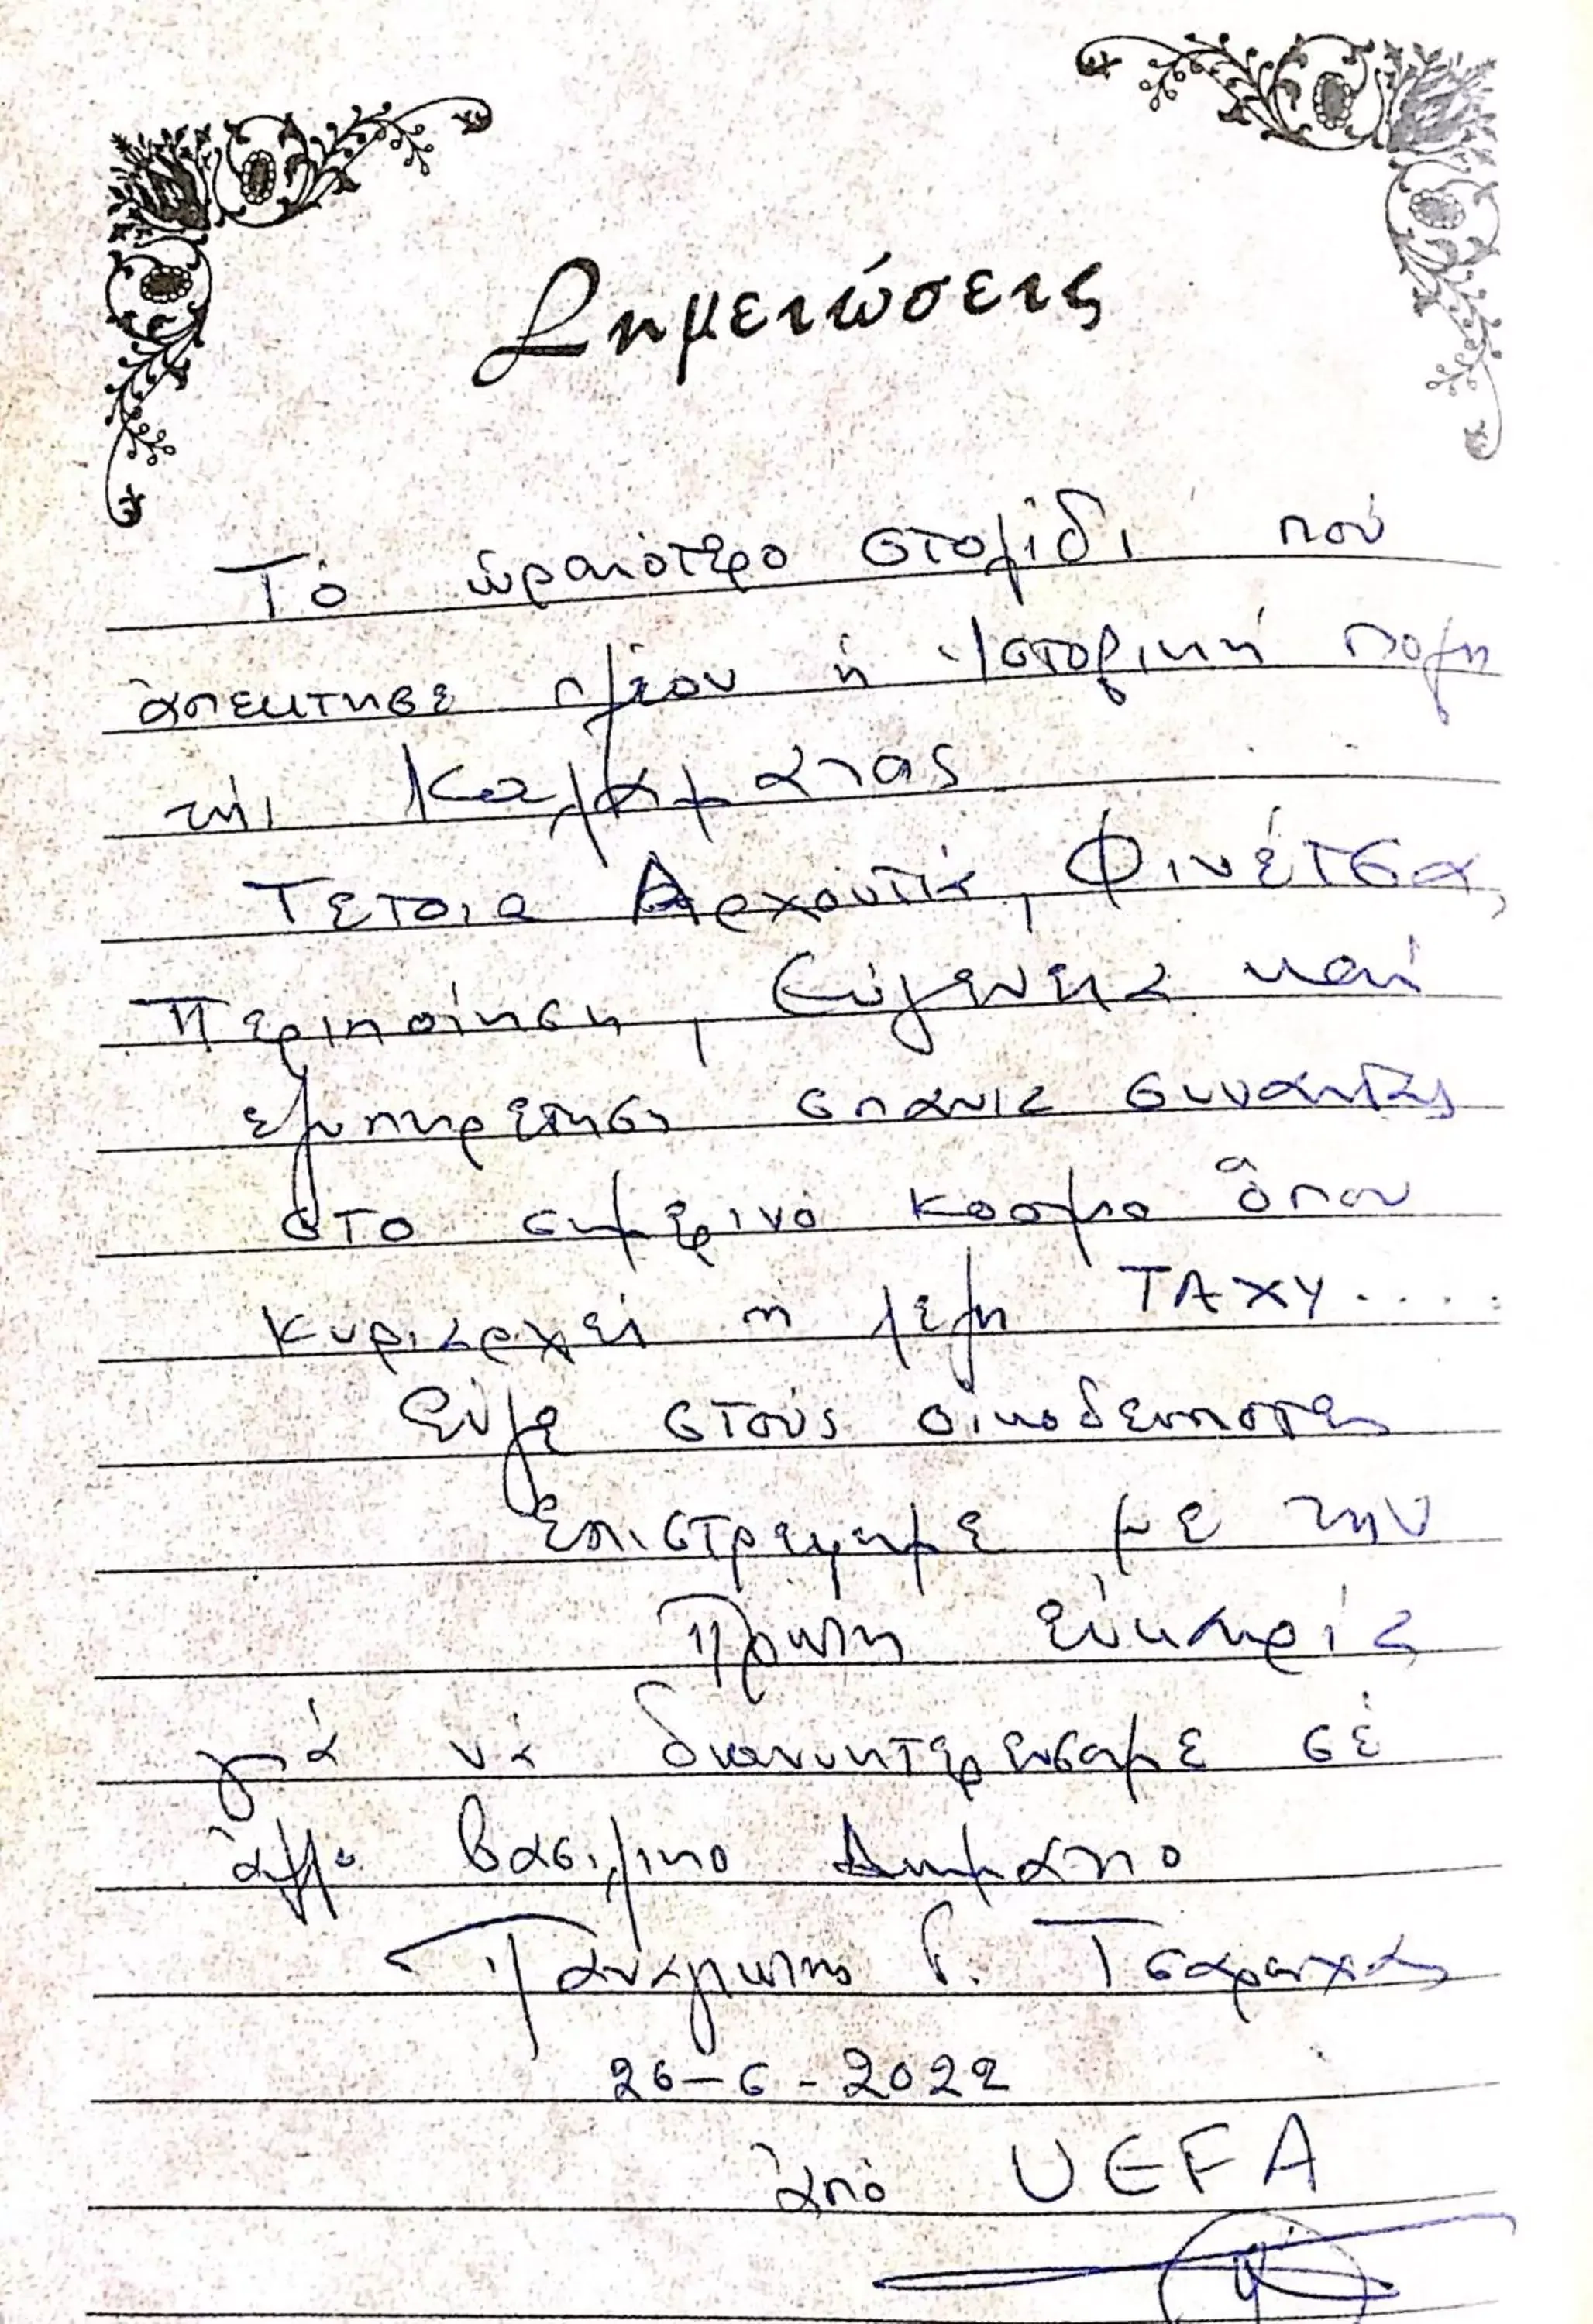 Σημειώσεις
Τό ὡραιότερο στολίδι πού
ἀπεκτησε πλέον ἡ Ἱστορική πολη
τής Καλαμάτας
Τετοια Αρχοντιά, Φινέτσα,
Περιποίηση, Εὐγένεια καί
εξυπηρετηση σπανια συναντας
στο σημερινό κοσμο ὅπου
κυριαρχεί η λεξη ΤΑΧΥ.....
Εὐγε στούς οικοδεσποτες
Επιστρεψαμε με την
Πρωτη εὐκαιρία
γιά νά διανυκτερευσαμε σέ
άλλο βασιλικο Δωματιο
Παναγιωτης Γ. Τσαρουχας
26-6-2022
ἀπό UEFA